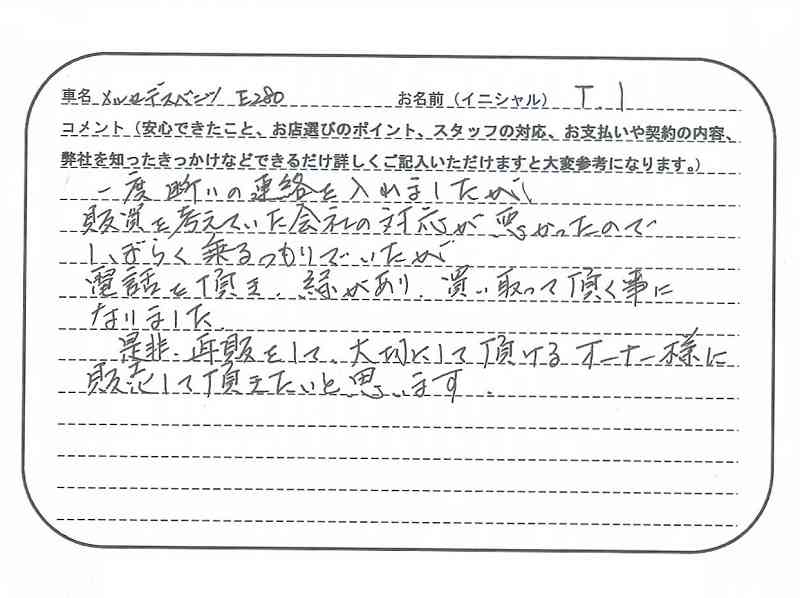 車名 メルセデスベンツ E280 お名前（イニシャル） T.I
コメント（安心できたこと、お店選びのポイント、スタッフの対応、お支払いや契約の内容、
弊社を知ったきっかけなどできるだけ詳しくご記入いただけますと大変参考になります。）
一度断りの連絡を入れましたが、
販買を考えていた会社の対応が悪かったので
しばらく乗るつもりでいたが
電話を頂き、縁があり、買い取って頂く事に
なりました。
是非、再販をして、大切にして頂けるオーナー様に
販売して頂きたいと思います。